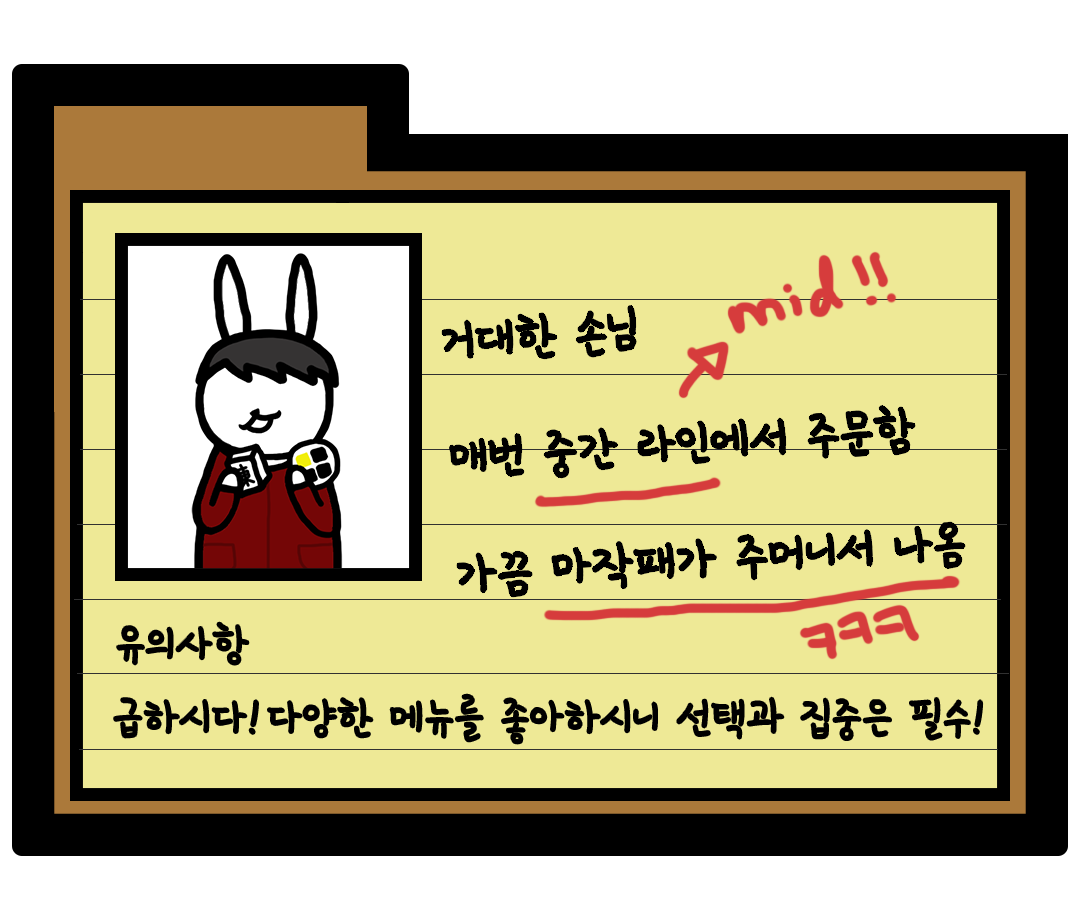 거대한 손님
mid!!
매번 중간 라인에서 주문함
가끔 마작패가 주머니서 나옴
ㅋㅋㅋ
유의사항
급하시다! 다양한 메뉴를 좋아하시니 선택과 집중은 필수!
東